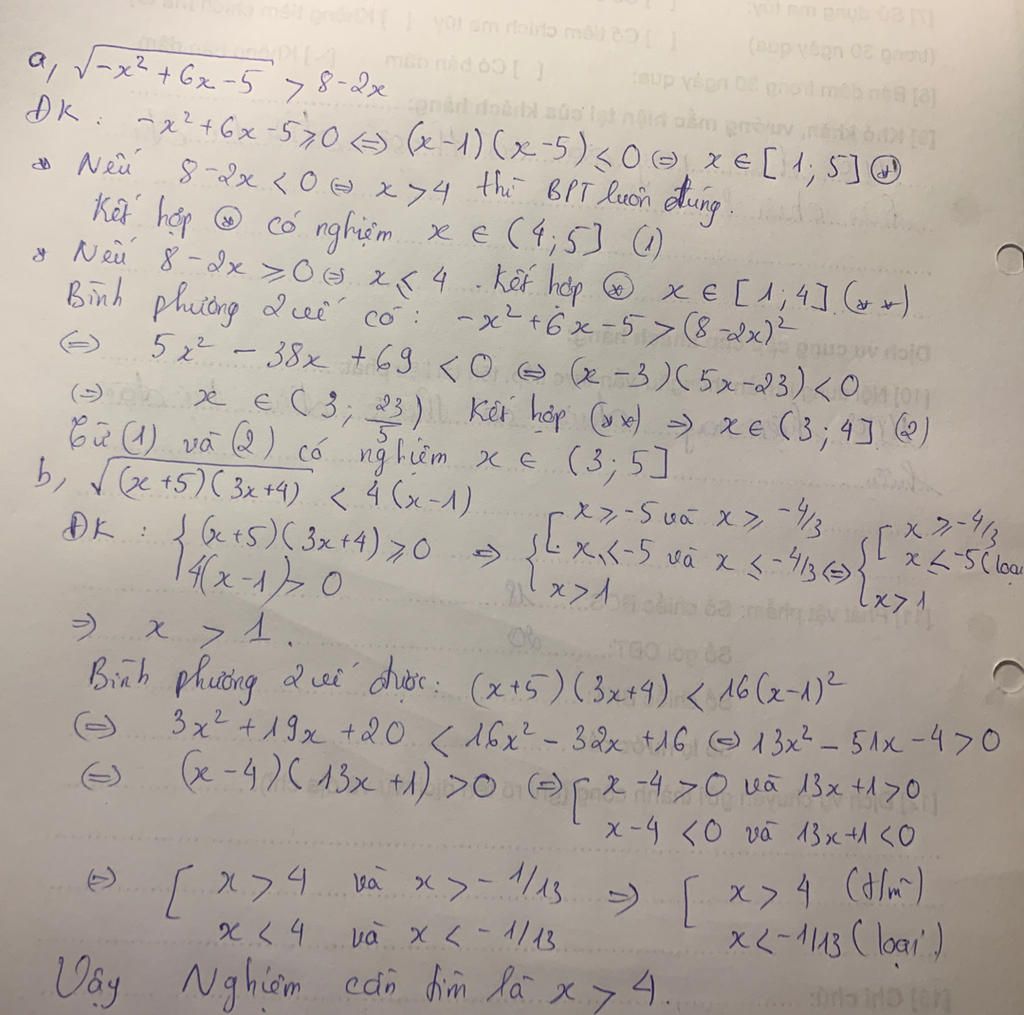 a, √(-x² + 6x - 5) > 8 - 2x
ĐK : -x² + 6x - 5 ≥ 0 ⇔ (x-1)(x-5) ≤ 0 ⇔ x ∈ [1; 5] (*)
* Nếu 8 - 2x < 0 ⇔ x > 4 thì BPT luôn đúng.
Kết hợp (*) có nghiệm x ∈ (4; 5] (1)
* Nếu 8 - 2x ≥ 0 ⇔ x ≤ 4. Kết hợp (*) x ∈ [1; 4] (**)
Bình phương 2 vế có: -x² + 6x - 5 > (8 - 2x)²
⇔ 5x² - 38x + 69 < 0 ⇔ (x - 3)(5x - 23) < 0
⇔ x ∈ (3; 23/5) Kết hợp (**) ⇒ x ∈ (3; 4] (2)
Từ (1) và (2) có nghiệm x ∈ (3; 5]
b, √((x+5)(3x+4)) < 4(x-1)
ĐK : { (x+5)(3x+4) ≥ 0 ⇒ { [ x ≥ -5 và x ≥ -4/3 ⇔ { [ x ≥ -4/3
4(x-1) > 0 x ≤ -5 và x ≤ -4/3 x ≤ -5 (loại
x > 1 x > 1
⇒ x > 1.
Bình phương 2 vế được: (x+5)(3x+4) < 16(x-1)²
⇔ 3x² + 19x + 20 < 16x² - 32x + 16 ⇔ 13x² - 51x - 4 > 0
⇔ (x - 4)(13x + 1) > 0 ⇔ [ x - 4 > 0 và 13x + 1 > 0
x - 4 < 0 và 13x + 1 < 0
⇔ [ x > 4 và x > -1/13 ⇒ [ x > 4 (t/m)
x < 4 và x < -1/13 x < -1/13 (loại)
Vậy Nghiệm cần tìm là x > 4.